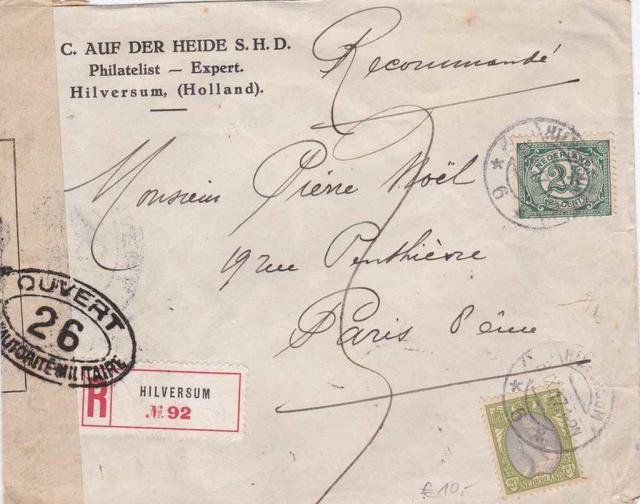 C. AUF DER HEIDE S.H.D.
Philatelist — Expert.
Hilversum, (Holland).
Recommandé
NEDERLAND
2½
2½ CENT
Monsieur Pierre Noël
19 rue Penthièvre
Paris 8ème
OUVERT
26
AUTORITÉ MILITAIRE
R
HILVERSUM
№ 92
20
NEDERLAND
20
£ 10,-